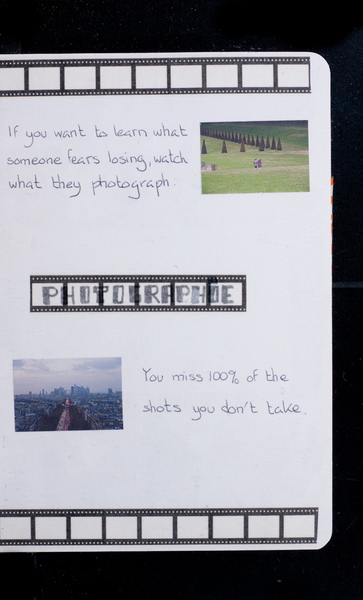 If you want to learn what
someone fears losing, watch
what they photograph.
PHOTOGRAPHIE
You miss 100% of the
shots you don't take.